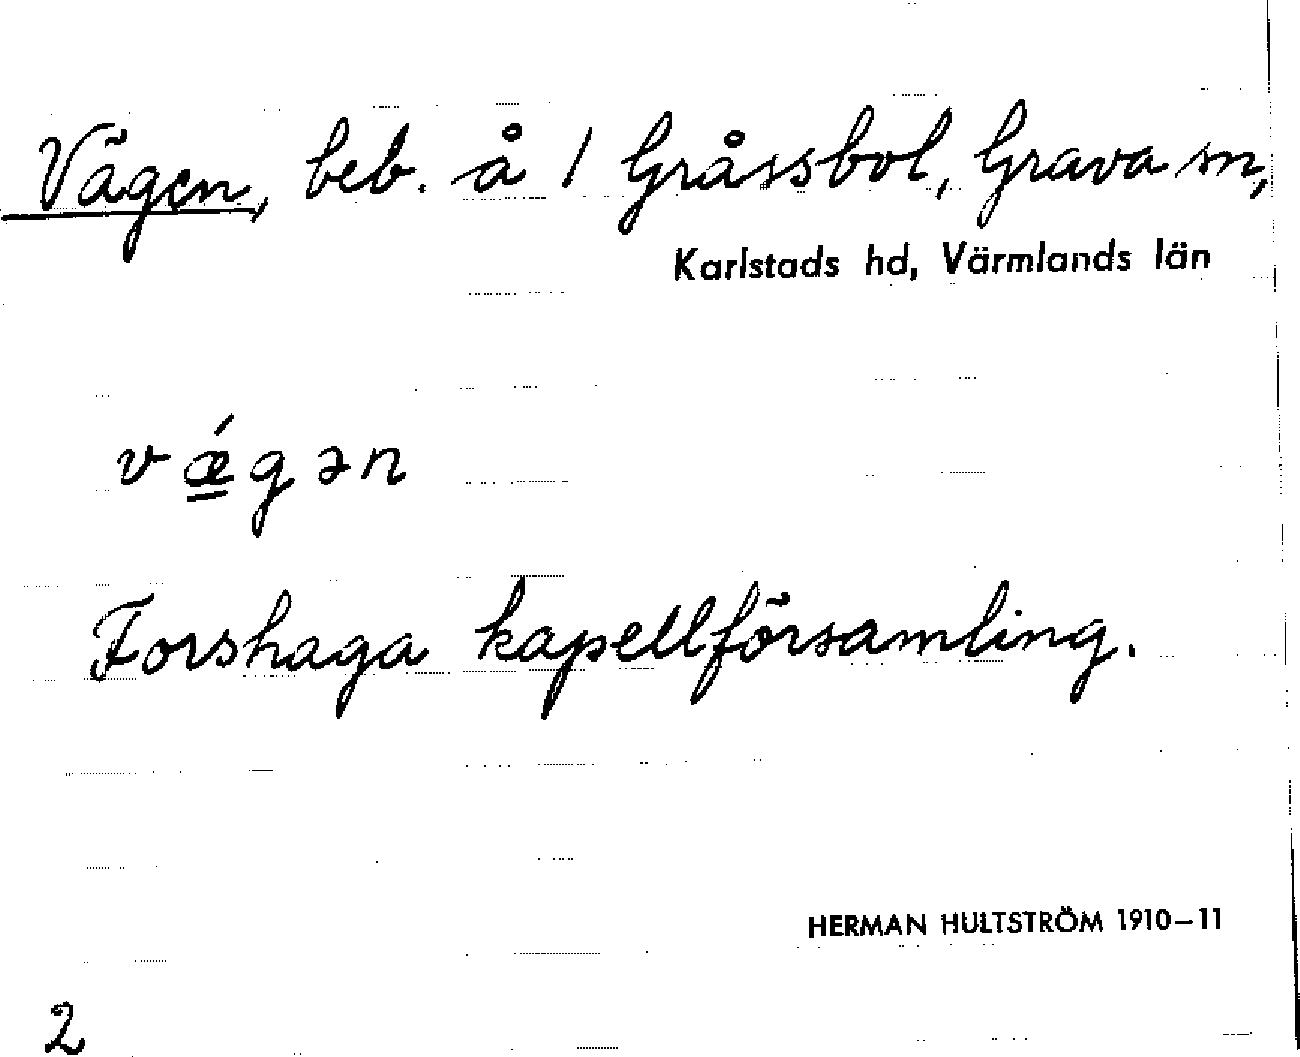 Vägen, beb. å 1 Gråssbol, Grava sn,
Karlstads hd, Värmlands län
vǽgən
Forshaga kapellförsamling.
HERMAN HULTSTRÖM 1910–11
2